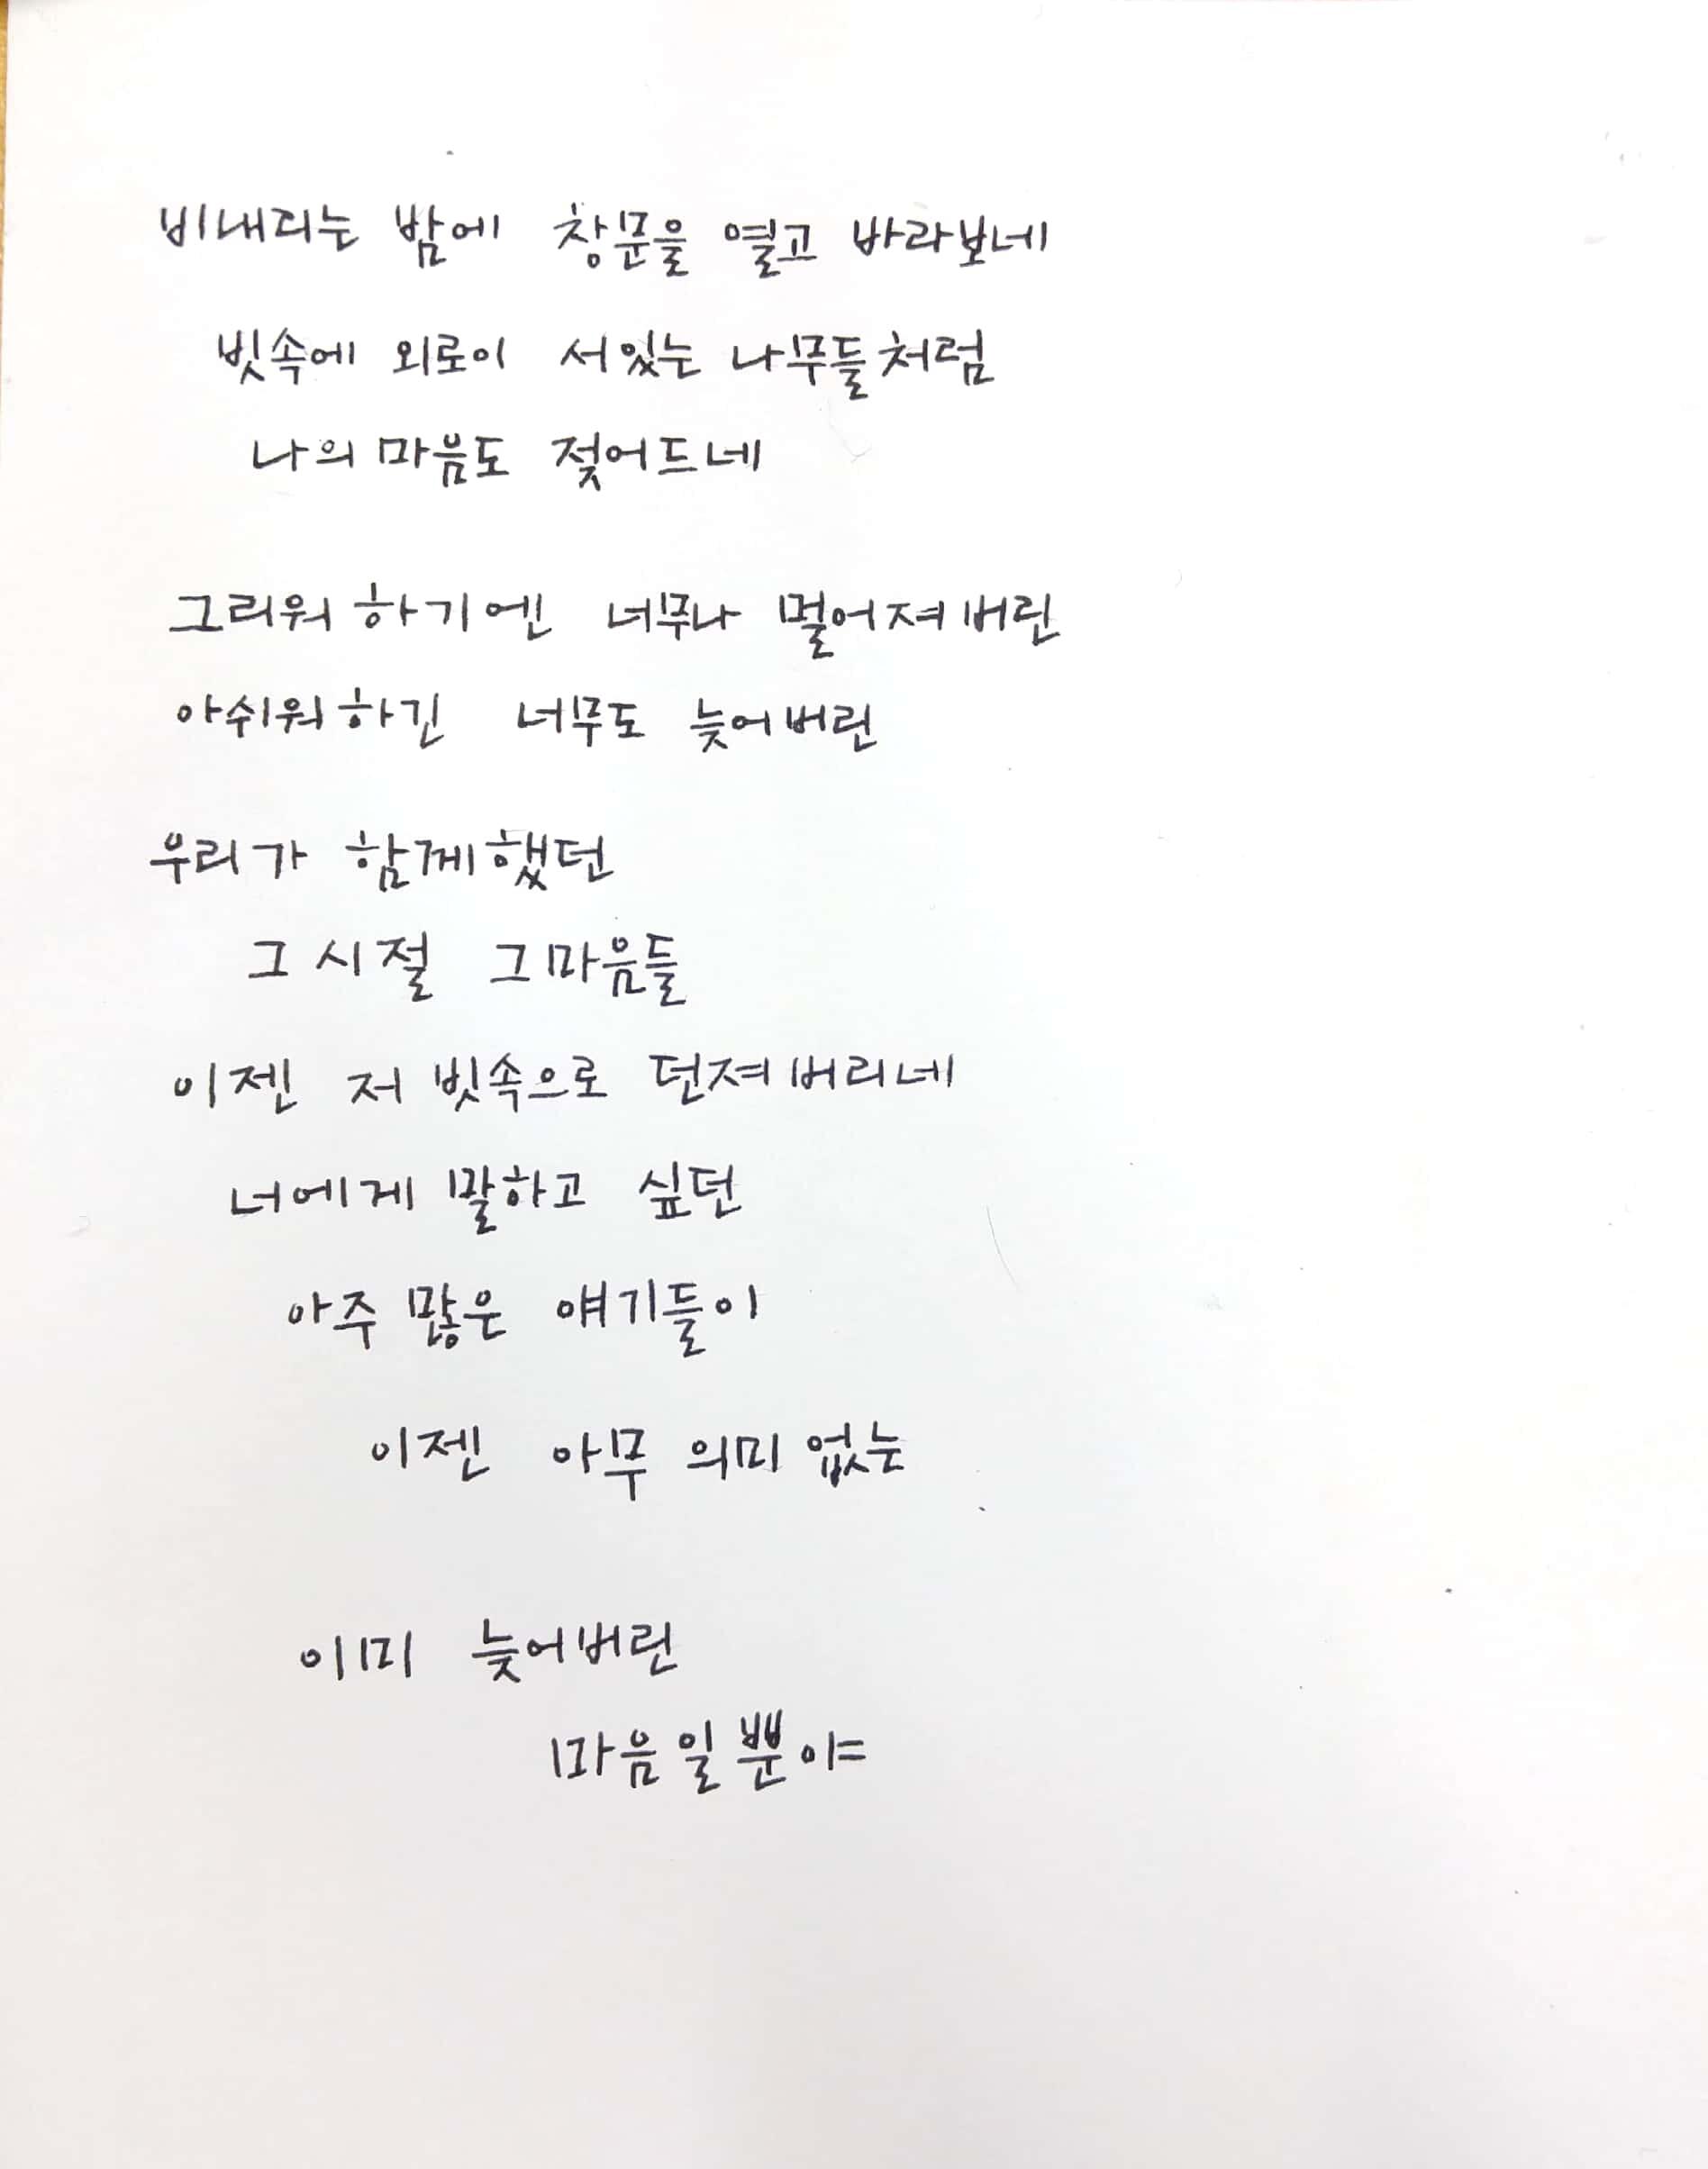 비내리는 밤에 창문을 열고 바라보네
빗속에 외로이 서있는 나무들처럼
나의 마음도 젖어드네
그리워 하기엔 너무나 멀어져버린
아쉬워하긴 너무도 늦어버린
우리가 함께했던
그 시절 그마음들
이젠 저 빗속으로 던져버리네
너에게 말하고 싶던
아주 많은 얘기들이
이젠 아무 의미 없는
이미 늦어버린
마음일뿐야